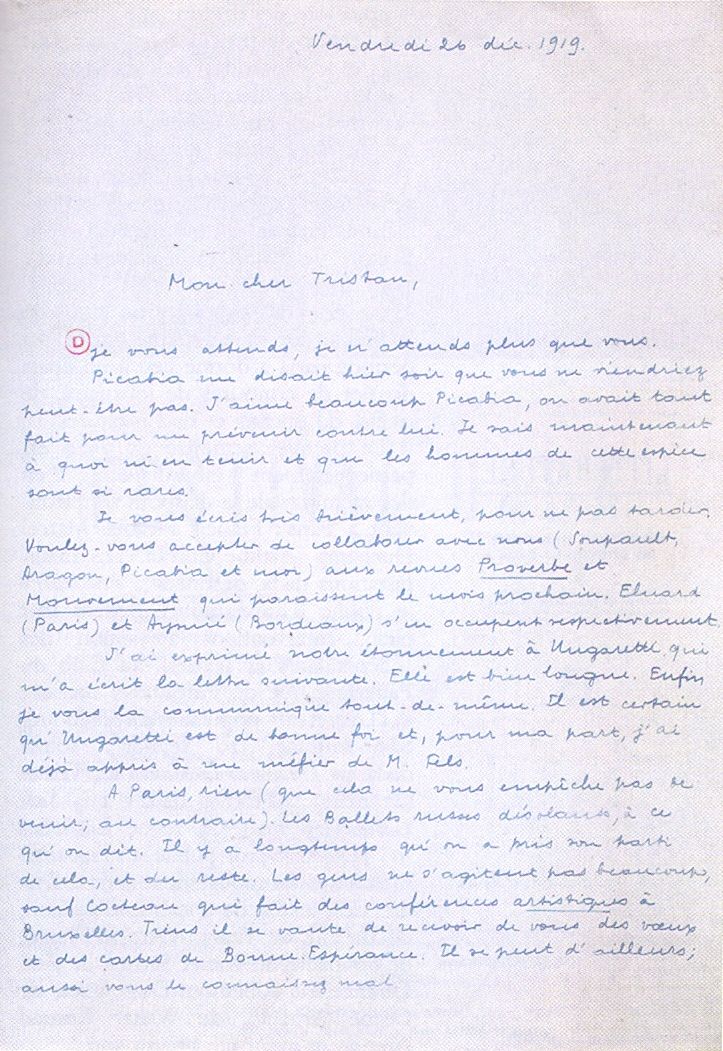 Vendredi 26 déc. 1919.
Mon cher Tristan,
D
je vous attends, je n'attends plus que vous.
Picabia me disait hier soir que vous ne viendriez
peut-être pas. J'aime beaucoup Picabia, on avait tout
fait pour me prévenir contre lui. Je sais maintenant
à quoi m'en tenir et que les hommes de cette espèce
sont si rares.
Je vous écris très brièvement, pour ne pas tarder.
Voulez-vous accepter de collaborer avec nous (Soupault,
Aragon, Picabia et moi) aux revues Proverbe et
Mouvement qui paraissent le mois prochain. Eluard
(Paris) et (Bordeaux) s'en occupent respectivement.
J'ai exprimé notre étonnement à Ungaretti, qui
m'a écrit la lettre suivante. Elle est bien longue. Enfin
je vous la communique tout-de-même. Il est certain
qu'Ungaretti est de bonne foi et, pour ma part, j'ai
déjà appris à me méfier de M. Fels.
A Paris, rien (que cela ne vous empêche pas de
venir; au contraire). Les Ballets russes désolants, à ce
qu'on dit. Il y a longtemps qu'on a pris son parti
de cela, et du reste. Les gens ne s'agitent pas beaucoup,
sauf Cocteau qui fait des conférences artistiques à
Bruxelles. Tiens il se vante de recevoir de vous des vœux
et des cartes de Bonne-Espérance. Il se peut d'ailleurs;
aussi vous le connaissez mal.